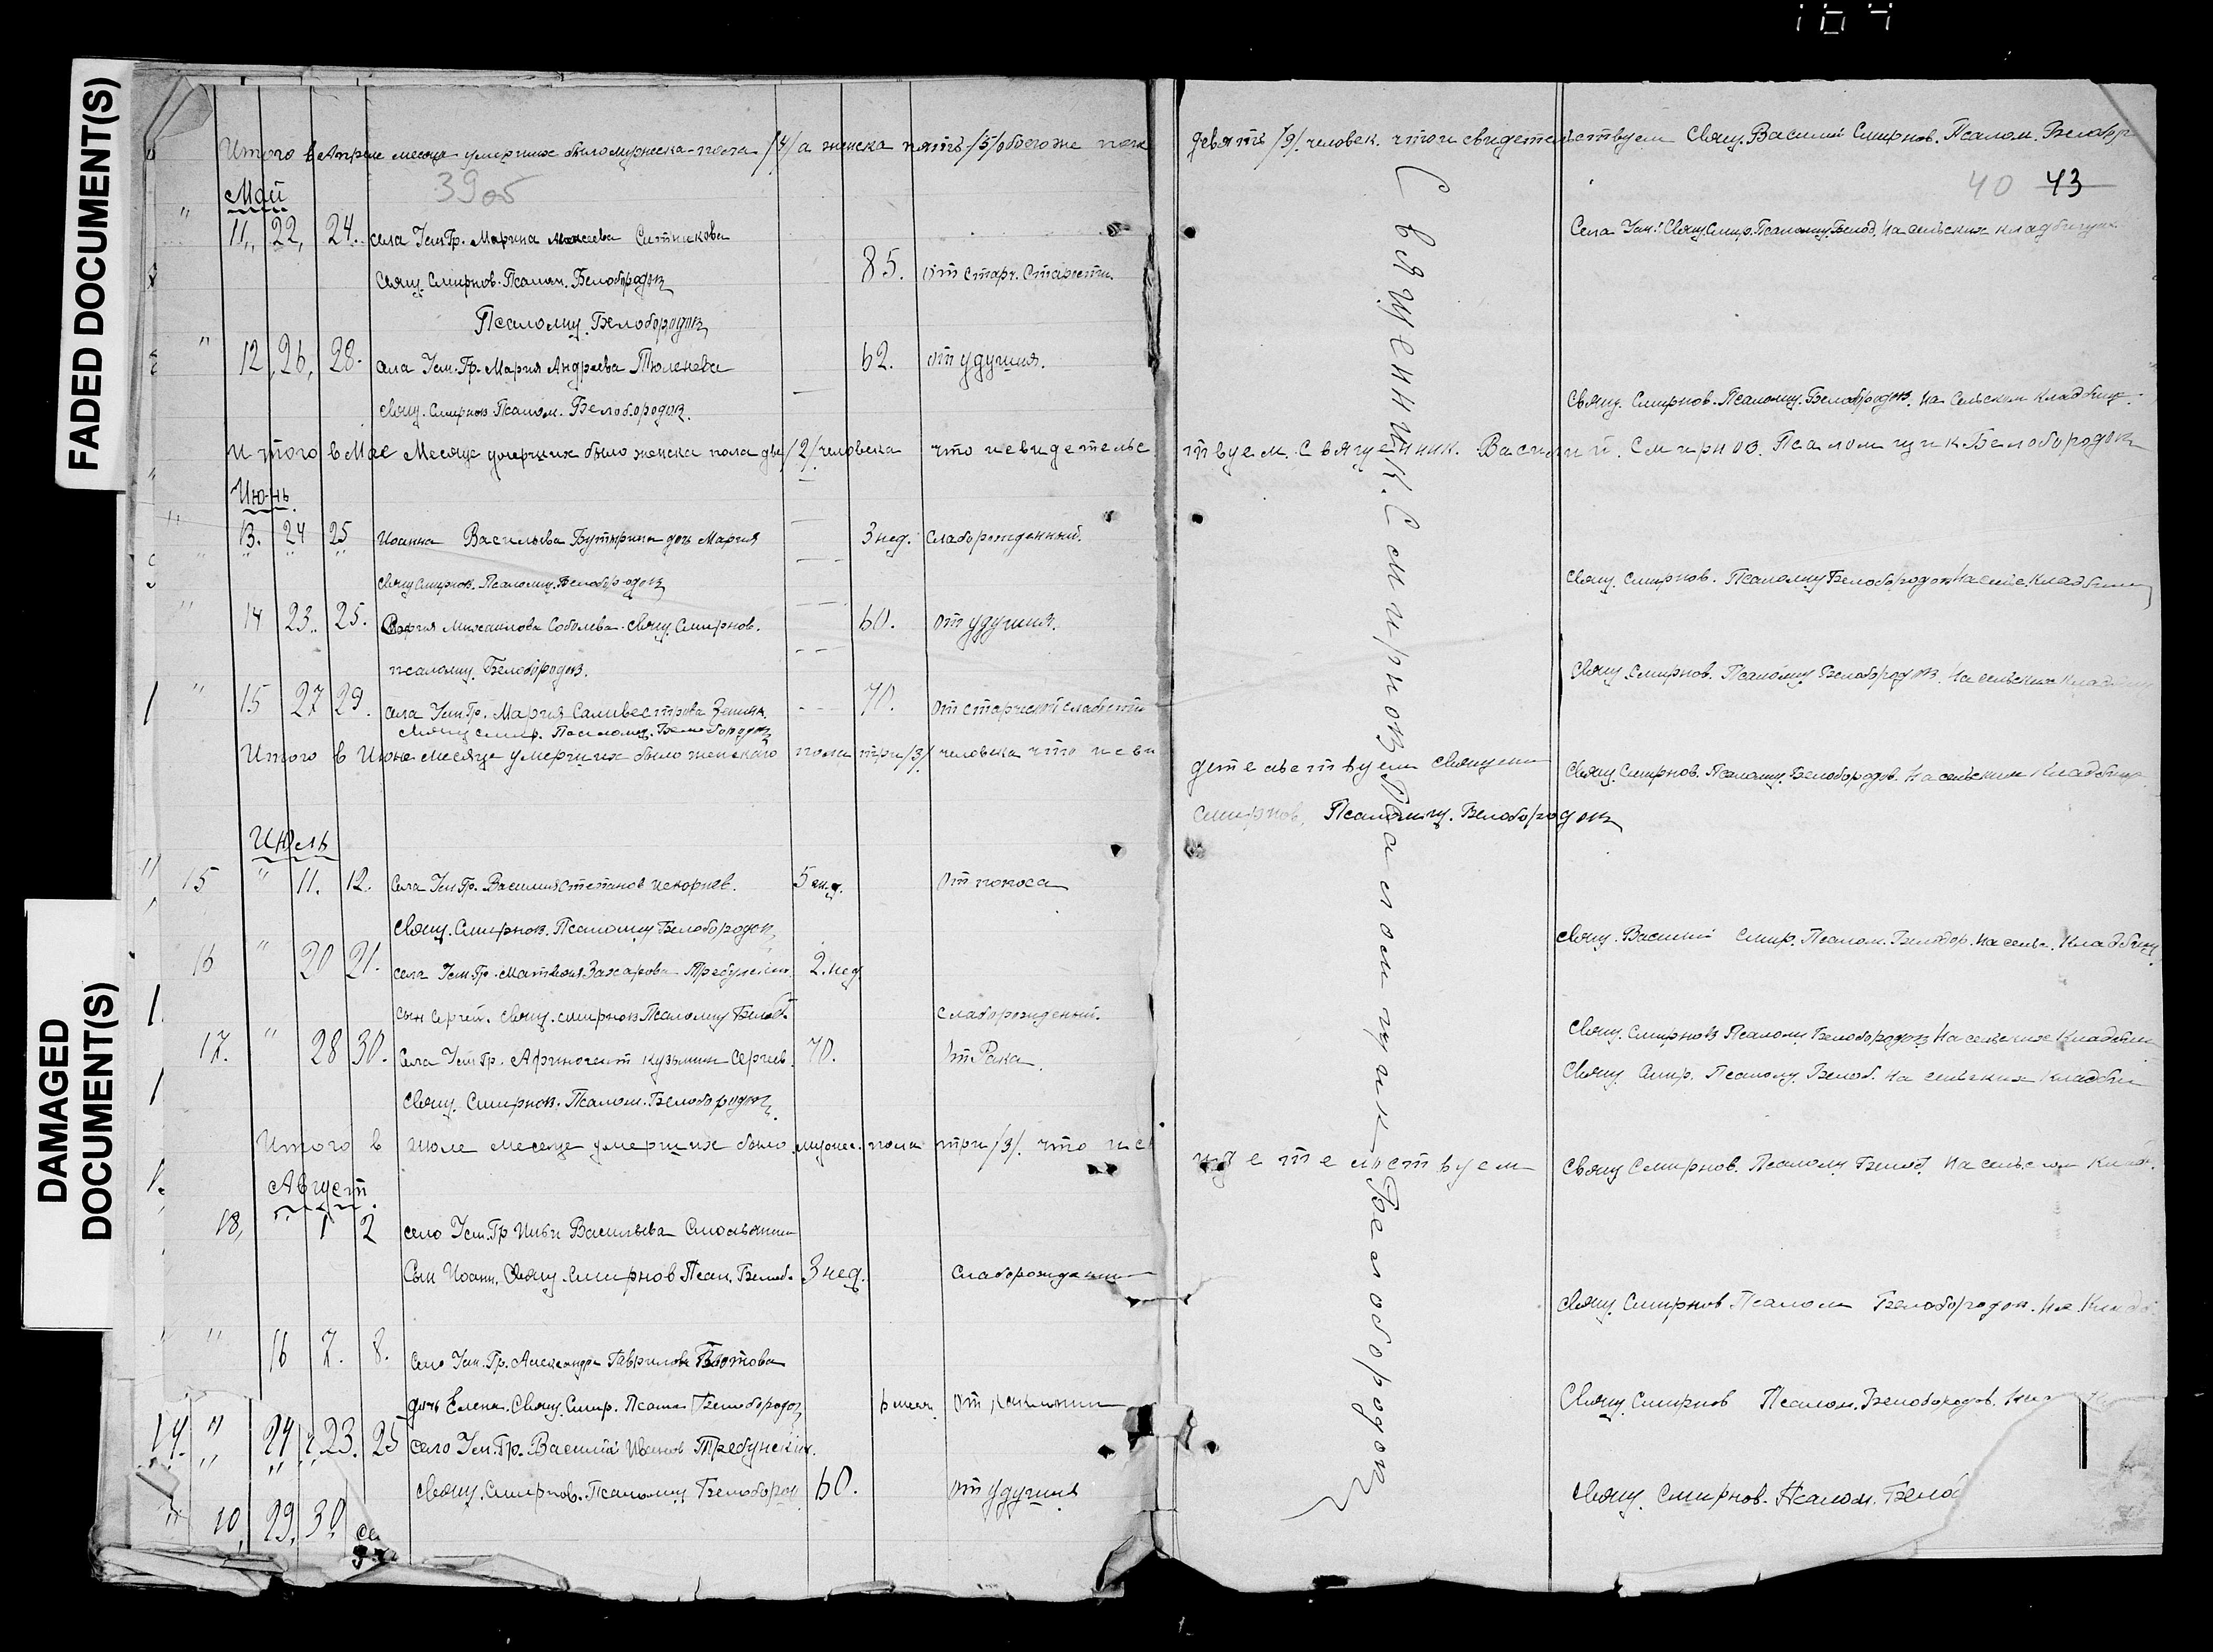 FADED DOCUMENT(S)
DAMAGED DOCUMENT(S)
Итого в Апреле месяце умерших было мужеска пола /4/ а женска пять /5/ обоего же пола девять /9/ человек. что и свидетельствуем Свящ. Василий Смирнов. Псалом. Белобор
39об
40 43
Май
" 11, 22, 24. села Усть Гр. Марина Ситникова
Свящ. Смирнов. Псалом. Белобородов 85. от старч.
Псаломщ. Белобородов
" 12, 26, 28. села Уст. Гр. Мария Андреева Тюленева 62. от удушия.
свящ. Смирнов Псалом. Белобородов.
Свящ. Смирнов. Псаломщ. Белобородов. на сельском кладбищ.
итого в Мае Месяце умерших было женска пола две /2/ человека что и свидетельствуем. Священник. Василий. Смирнов. Псаломщик Белобородов
Июнь
" 13. 24 25 Иоанна Васильева Бутырина дочь Мария 3 нед. Слаборожденный.
свящ Смирнов. Псаломщ. Белобородов
свящ. Смирнов. Псаломщ Белобородов На сельс. Кладбищ
" 14 23. 25. Мария Михаилова Соболева. свящ. Смирнов. 60. от удушия.
псаломщ. Белобородов.
Свящ. Смирнов. Псаломщ Белобородов. На сельских кладбищ
" 15 27 29. села Уст. Гр. Мария Саливестрова 70. от старческой слабости
Свящ Смир. Псаломщ. Белобородов
Итого в Июне месяце умерших было женского пола три /3/ человека что и свидетельствуем священ
Свящ. Смирнов. Псаломщ. Белобородов. На сельских Кладбищ.
Смирнов, Псаломщ. Белобородов
Июль
15 " 11. 12. Села Уст. Гр. Василий Степанов 5 От поноса
свящ. Смирнов. Псаломщ Белобородов
свящ. Василий Смир. Псалом. Белобор. На сельс. Кладбищ.
16 " 20 21. села Уст. Гр. Матвея Захарова Требунских 2. нед
сын Сергей. свящ. Смирнов Псаломщ Белоб. слаборожденый.
свящ. Смирнов Псаломщ Белобородов На сельских Кладбищ
17. " 28 30. Села Уст. Гр. Афиноген кузьмин Сергеев. 70. от Рака.
свящ. Смир. Псаломщ. Белоб. на сельских Кладбищ
свящ. Смирнов. Псалом. Белобородов.
Итого в июле месяце умерших было мужес. пола три /3/. что и свидетельствуем
свящ Смирнов. Псаломщ Белоб. На сельском Клад.
Август
18, 1 2 село Уст. Гр Ильи Васильева
Сын Иоанн. Свящ. Смирнов Псал. Белоб. 3 нед. Слаборожден
свящ. Смирнов Псалом Белобородов. На. Кладб.
" " 16 7. 8. Село Уст. Гр. Александра Гаврилова
дочь Елена. Свящ. Смир. Псалом Белобородов 6 месяч. От
Свящ. Смирнов Псалом. Белобородов.
19. " 24 23. 25 село Уст. Гр. Василий Иванов Требунских.
свящ. Смирнов. Псаломщ Белобород 60. от удушия
свящ. Смирнов. Псалом. Бело
" 10, 29, 30 се
Священник. Смирнов Псаломщик Белобородов